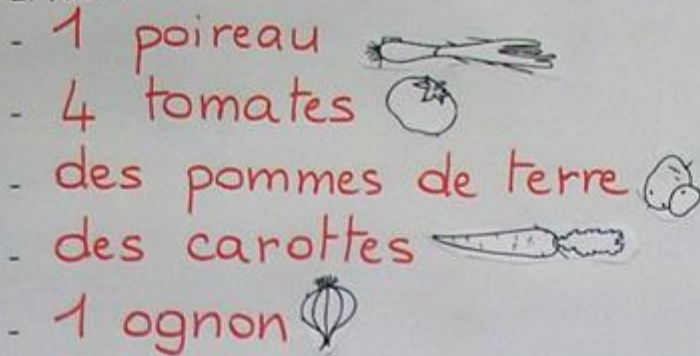 - 1 poireau
- 4 tomates
- des pommes de terre
- des carottes
- 1 ognon